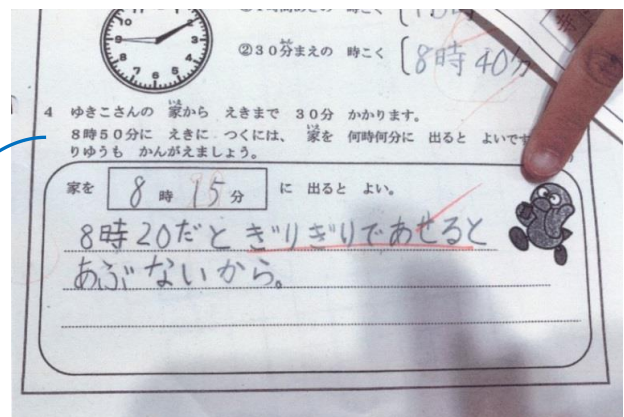 ②30分まえの 時こく 8時40分
4 ゆきこさんの 家から えきまで 30分 かかります。
8時50分に えきに つくには、 家を 何時何分に 出ると よいで
りゆうも かんがえましょう。
家を 8 時 15 分 に 出ると よい。
8時20だと ぎりぎりであせると
あぶないから。